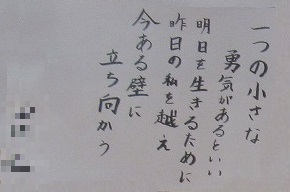 一つの小さな
勇気があるといい
明日を生きるために
昨日の私を越え
今ある壁に
立ち向かう